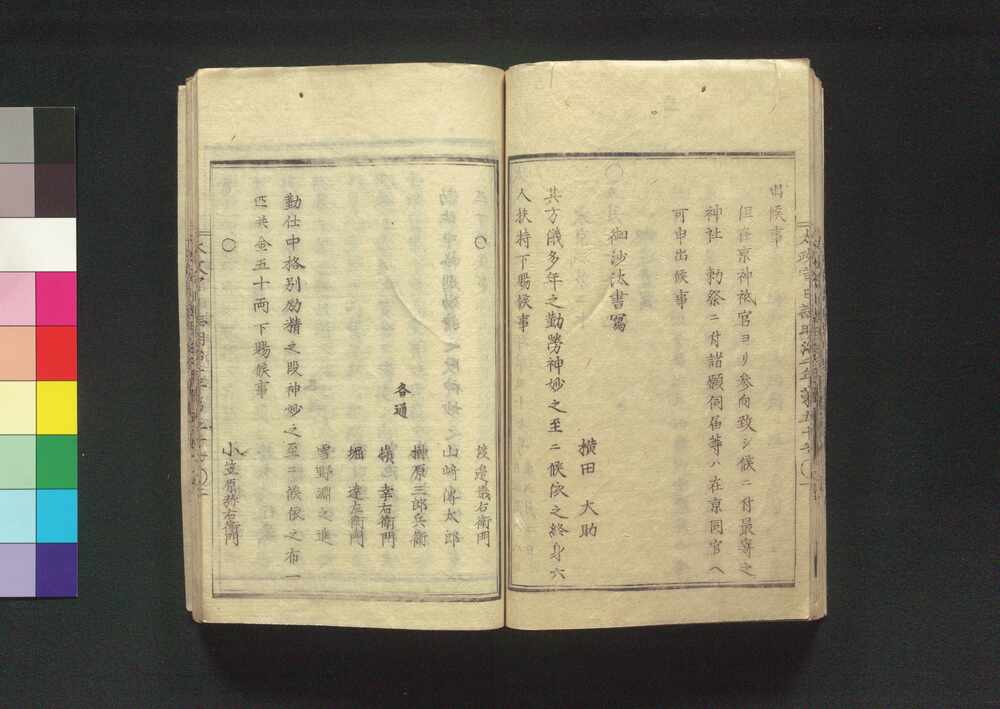 出候事
但在京神祗官ヨリ参向致シ候ニ付最寄之
神社 勅祭ニ付諸願伺届等ハ在京同官ヘ
可申出候事
○御沙汰書寫
横田 大助
其方儀多年之勤勞神妙之至ニ候依之終身六
人扶持下賜候事
太政官日誌明治二年第五十七
○
邊嚴右衛門
山崎傳太郎
原三郎兵衛
幸右衛門
堀 達左衛門
雪野淵之進
各通
勤仕中格別勵精之段神妙之至ニ候依之布一
匹共金五十両下賜候事
○
小笠原弥右衛門